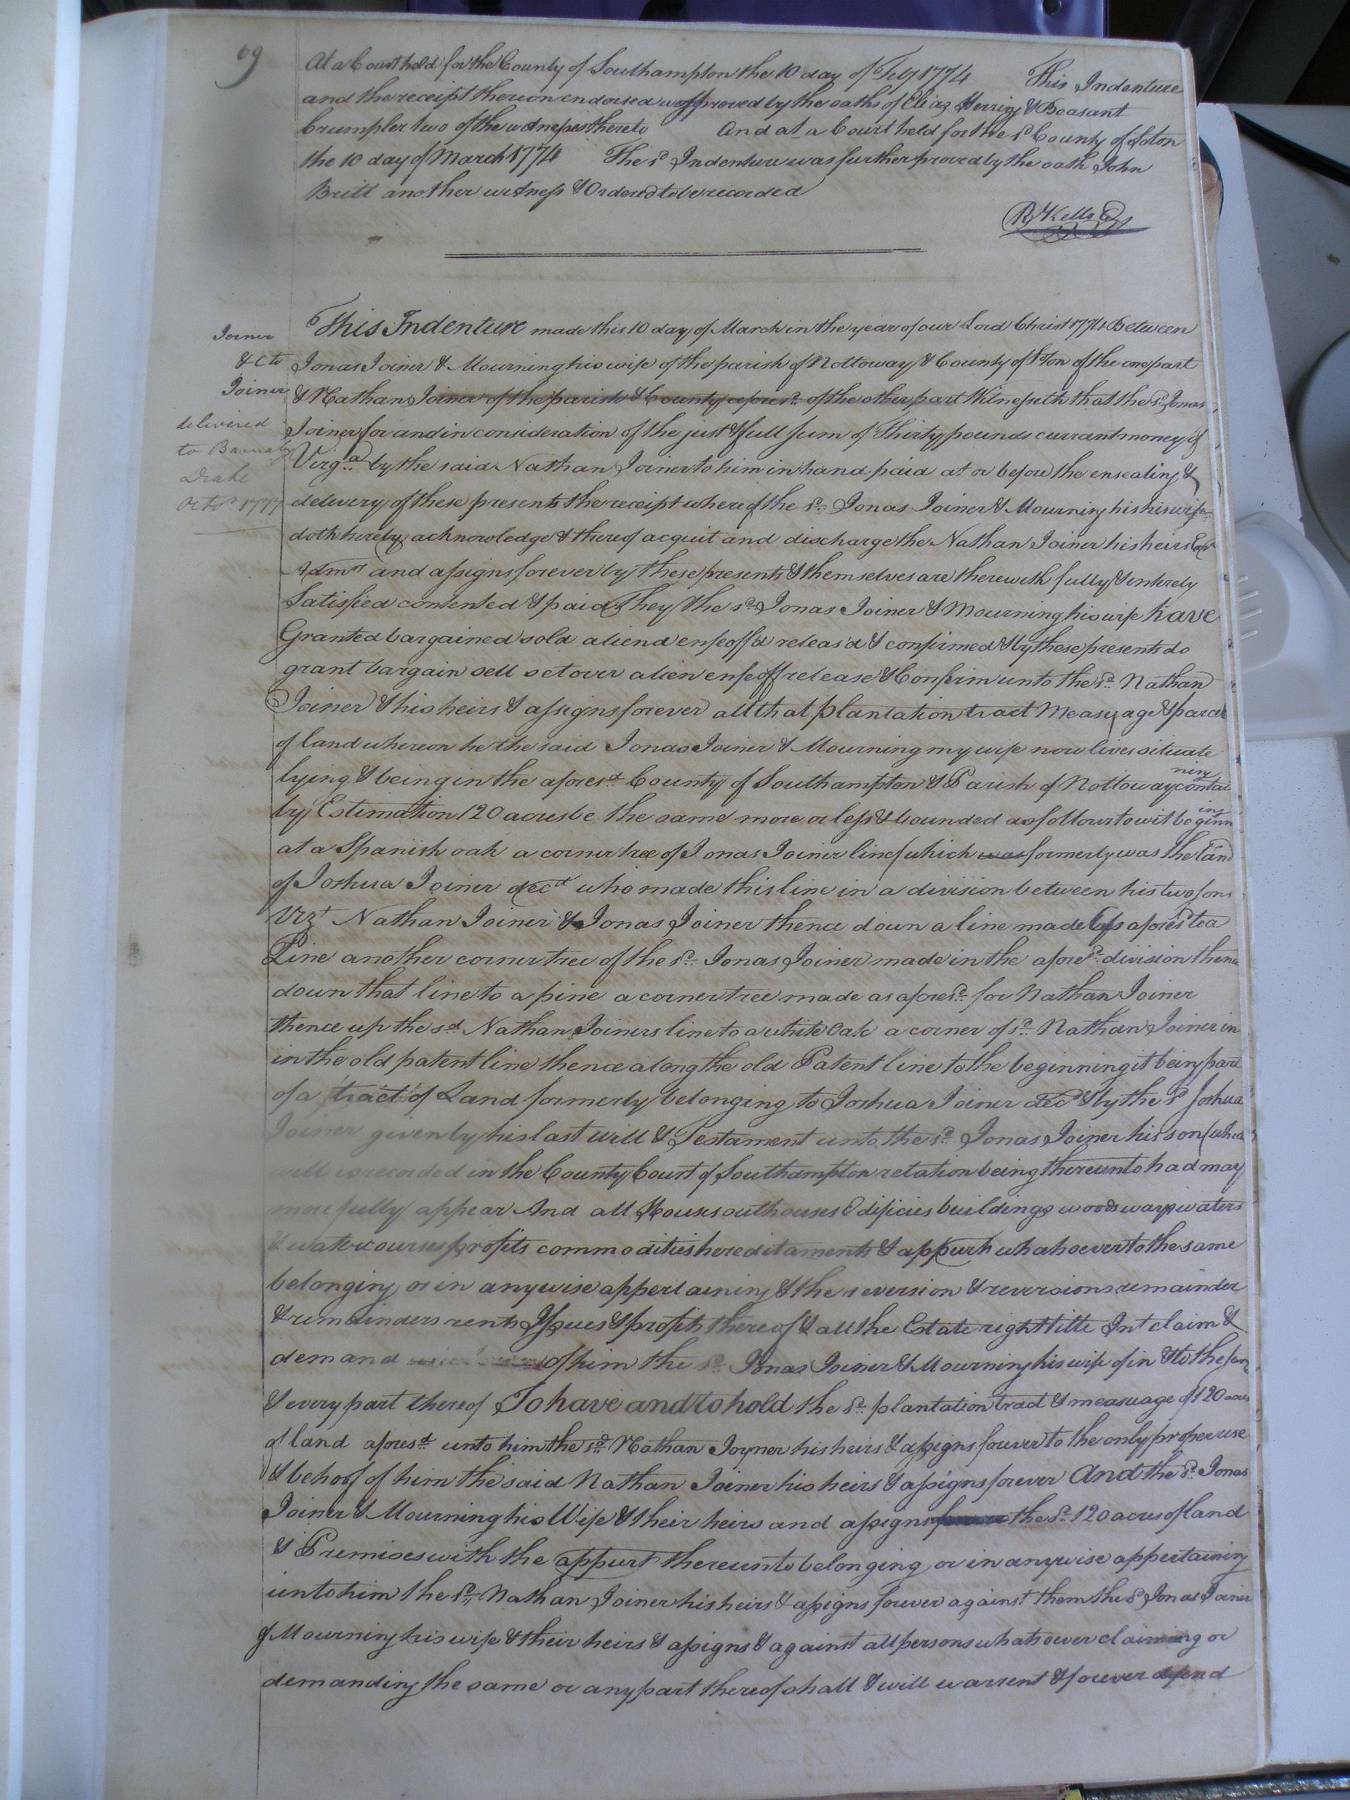 69
At a Court held for the County of Southampton the 10 day of Feby 1774 This Indenture
and the receipt thereon endorsed was proved by the oaths of Elias Herring & Beasant
Crumpler two of the witnesses thereto And at a Court held for the sd County of Soton
the 10 day of March 1774 The sd Indenture was further proved by the oath John
Britt another witness & Ordered to be recorded
R Kello
Joiner
& C to
Joiner
delivered
to Barnaby
Drake
Octr 1777
This Indenture made this 10 day of March in the year of our Lord Christ 1774 Between
Jonas Joiner & Mourning his wife of the parish of Nottoway & County of Ston of the one part
& Nathan Joiner of the parish & County aforesd of the other part Witnesseth that the sd Jonas
Joiner for and in consideration of the just & full Sum of Thirty pounds currant money of
Virga by the said Nathan Joiner to him in hand paid at or before the ensealing &
delivery of these presents the receipt whereof the sd Jonas Joiner & Mourning his his wife
doth hereby acknowledge & thereof acquit and discharge the Nathan Joiner his heirs Exrs
Admrs and assigns forever by these presents & themselves are therewith fully & entirely
Satisfied contented & paid They the sd Jonas Joiner & Mourning his wife have
Granted bargained sold aliend enfeoff'd releas'd & confirmed & by these presents do
grant bargain sell set over alien enfeoff release & Confirm unto the sd Nathan
Joiner & his heirs & assigns forever all that plantation tract Measuage & parcel
of land whereon he the said Jonas Joiner & Mourning my wife now lives situate
lying & being in the aforesd County of Southampton & Parish of Nottoway contai
ning
by Estimation 120 acres be the same more or less & bounded as follows to wit beginn
ing
at a Spanish oak a corner tree of Jonas Joiner line (which was formerly was the land
of Joshua Joiner decd who made this line in a division between his two sons
Vizt Nathan Joiner & Jonas Joiner thence down a line made as aforesd to a
Pine another corner tree of the sd Jonas Joiner made in the aforesd division thence
down that line to a pine a corner tree made as aforesd for Nathan Joiner
thence up the sd Nathan Joiners line to a white Oak a corner of sd Nathan Joiner in
in the old patent line thence along the old Patent line to the beginning it being part
of a tract of Land formerly belonging to Joshua Joiner decd & by the sd Joshua
Joiner given by his last will & Testament unto the sd Jonas Joiner his son (which
will is recorded in the County Court of Southampton relation being thereunto had may
more fully appear And all Houses outhouses Edificies buildings woods ways waters
& watercourses profits commodities hereditaments & appurts whatsoever to the same
belonging or in anywise appertaining & the reversion & reversions remainder
& remainders rents Issues & profits thereof & all the Estate right title Int claim &
demand of him the sd Jonas Joiner & Mourning his wife of in & to the same
& every part thereof To have and to hold the sd plantation tract & measuage of 120 acres
of land aforesd unto him the sd Nathan Joyner his heirs & assigns forever to the only proper use
& behoof of him the said Nathan Joiner his heirs & assigns forever And the sd Jonas
Joiner & Mourning his Wife & their heirs and assigns the sd 120 acres of land
& Premises with the appurt thereunto belonging or in anywise appertaining
unto him the sd Nathan Joiner his heirs & assigns forever against them the sd Jonas Joiner
& Mourning his wife & their heirs & assigns & against all persons whatsoever claiming or
demanding the same or any part thereof shall & will warrent & forever defend